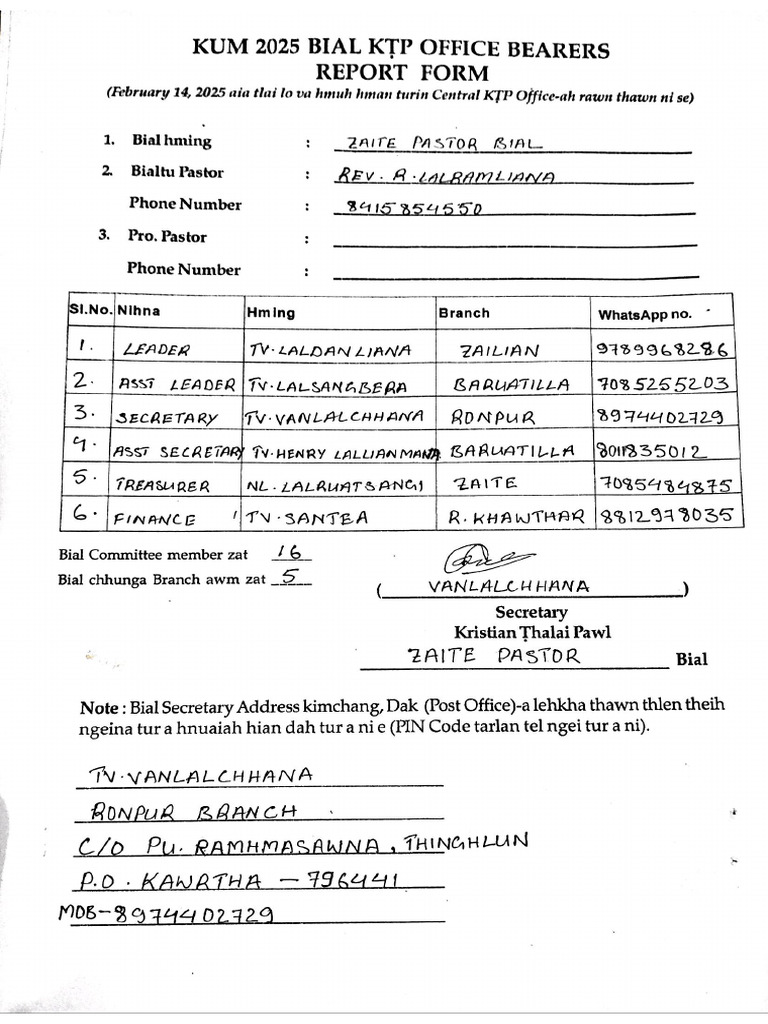 KUM 2025 BIAL KṬP OFFICE BEARERS
REPORT FORM
(February 14, 2025 aia tlai lo va hmuh hman turin Central KṬP Office-ah rawn thawn ni se)
1. Bial hming : ZAITE PASTOR BIAL
2. Bialtu Pastor : REV. R. LALRAMLIANA
Phone Number : 8415854550
3. Pro. Pastor :
Phone Number :
Sl.No. Nihna Hming Branch WhatsApp no.
1. LEADER TV. LALDANLIANA ZAILIAN 9789968286
2. ASST LEADER TV. LALSANGBERA BARUATILLA 7085255203
3. SECRETARY TV. VANLALCHHANA RONPUR 8974402729
4. ASST SECRETARY TV. HENRY LALLIANMANA BARUATILLA 8011835012
5. TREASURER NL. LALRUATSANGI ZAITE 7085484875
6. FINANCE TV. SANTEA R. KHAWTHAR 8812978035
Bial Committee member zat 16
Bial chhunga Branch awm zat 5
( VANLALCHHANA )
Secretary
Kristian Ṭhalai Pawl
ZAITE PASTOR Bial
Note : Bial Secretary Address kimchang, Dak (Post Office)-a lehkha thawn thlen theih
ngeina tur a hnuaiah hian dah tur a ni e (PIN Code tarlan tel ngei tur a ni).
TV. VANLALCHHANA
RONPUR BRANCH
C/O PU. RAMHMASAWNA, THINGHLUN
P.O. KAWRTHA – 796441
MOB – 8974402729